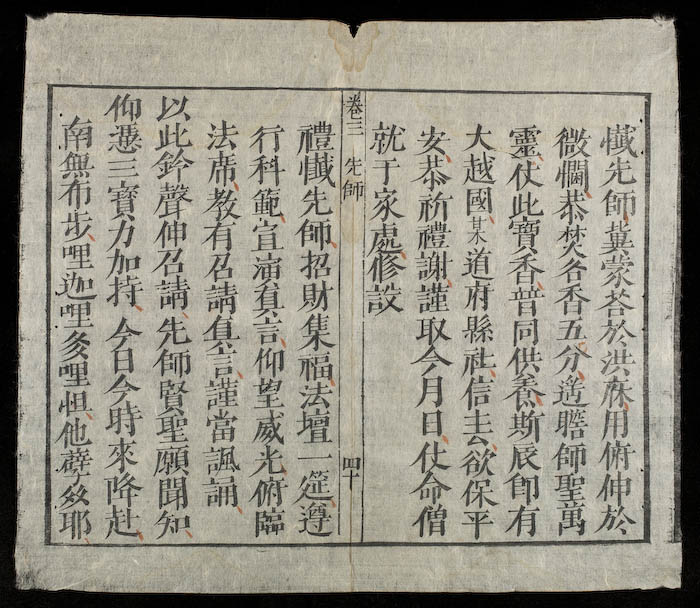 懴先師兾蒙荅於洪庥用俯伸於
微悃恭焚名香五分遙瞻師聖萬
靈仗此寶香普同供養斯辰即有
大越國某道府縣社信主厶欲保平
安恭祈禮謝謹取今月日仗命僧
就于家處修設
卷三 先師 四十
禮懴先師招財集福法壇一筵遵
行科範宣演真言仰望威光俯臨
法席教有召請真言謹當諷誦
以此鈴聲伸召請先師賢聖願聞知
仰憑三寶力加持今日今時來降赴
南無布步哩迦哩多哩怛他孽多耶